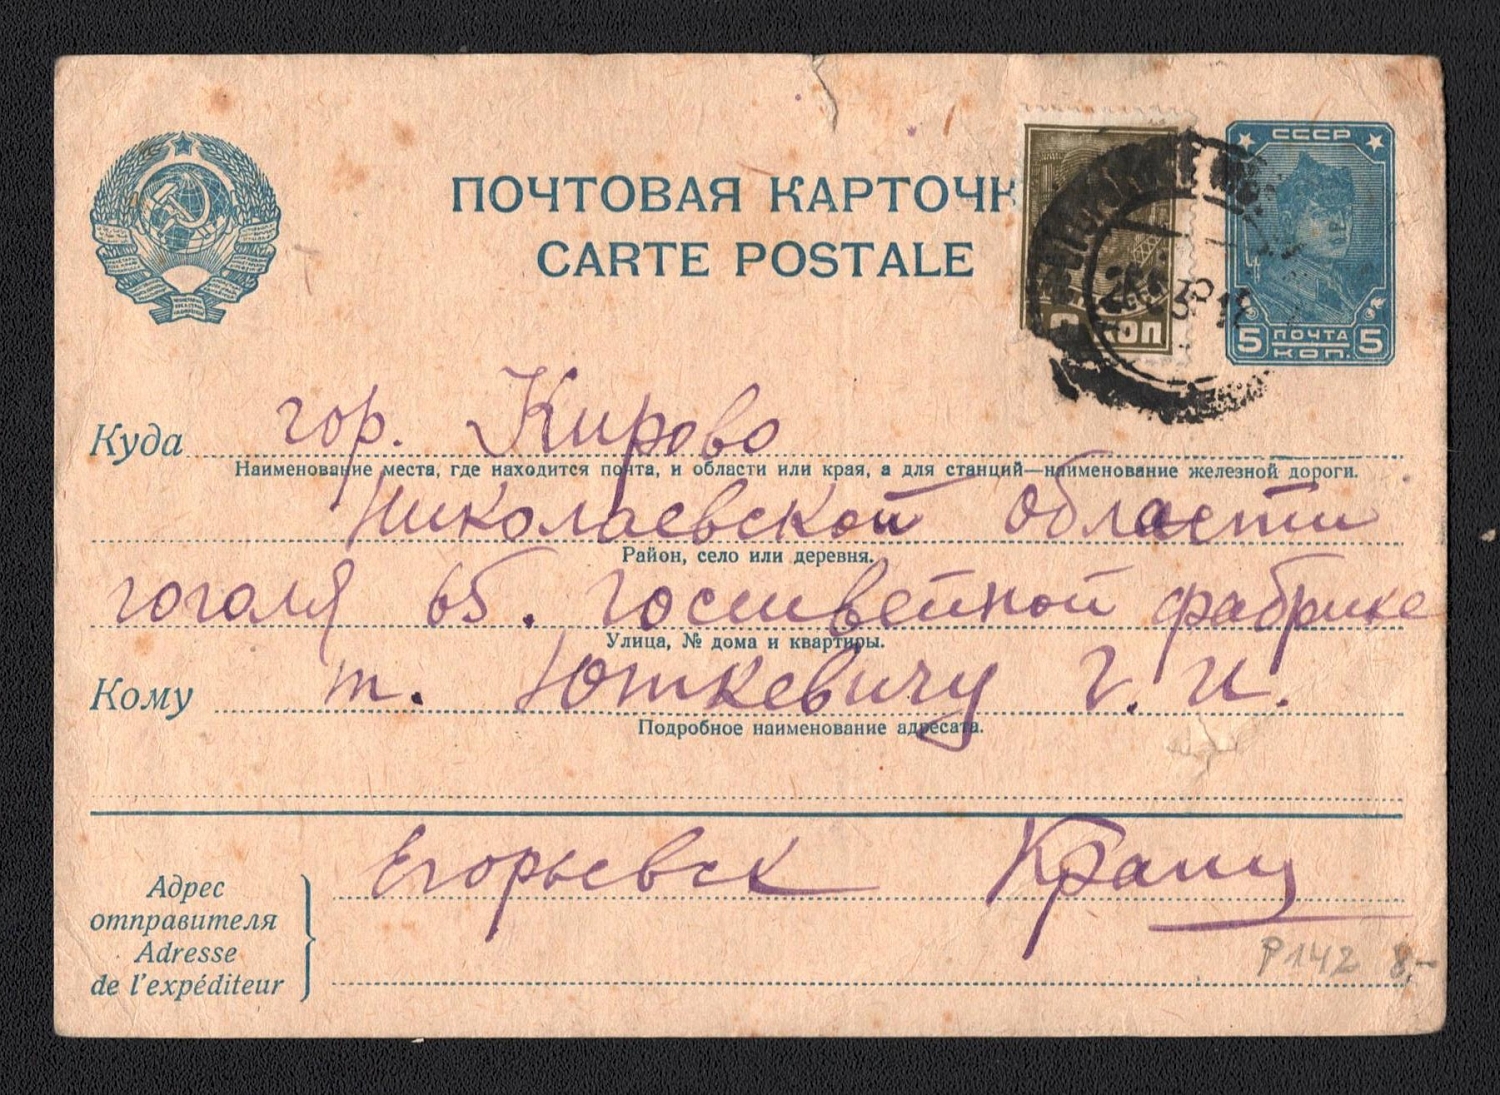 СССР
ПОЧТОВАЯ КАРТОЧК
CARTE POSTALE
КОП
5 ПОЧТА 5
КОП.
Куда гор. Кирово
Наименование места, где находится почта, и области или края, а для станций—наименование железной дороги.
Николаевской области
Район, село или деревня.
гоголя 65. Госшвейной фабрике
Улица, № дома и квартиры.
Кому т. Юткевичу Г. И.
Подробное наименование адресата.
Егорьевск Кранц
Адрес
отправителя
Adresse
de l'expéditeur
P142 8,-